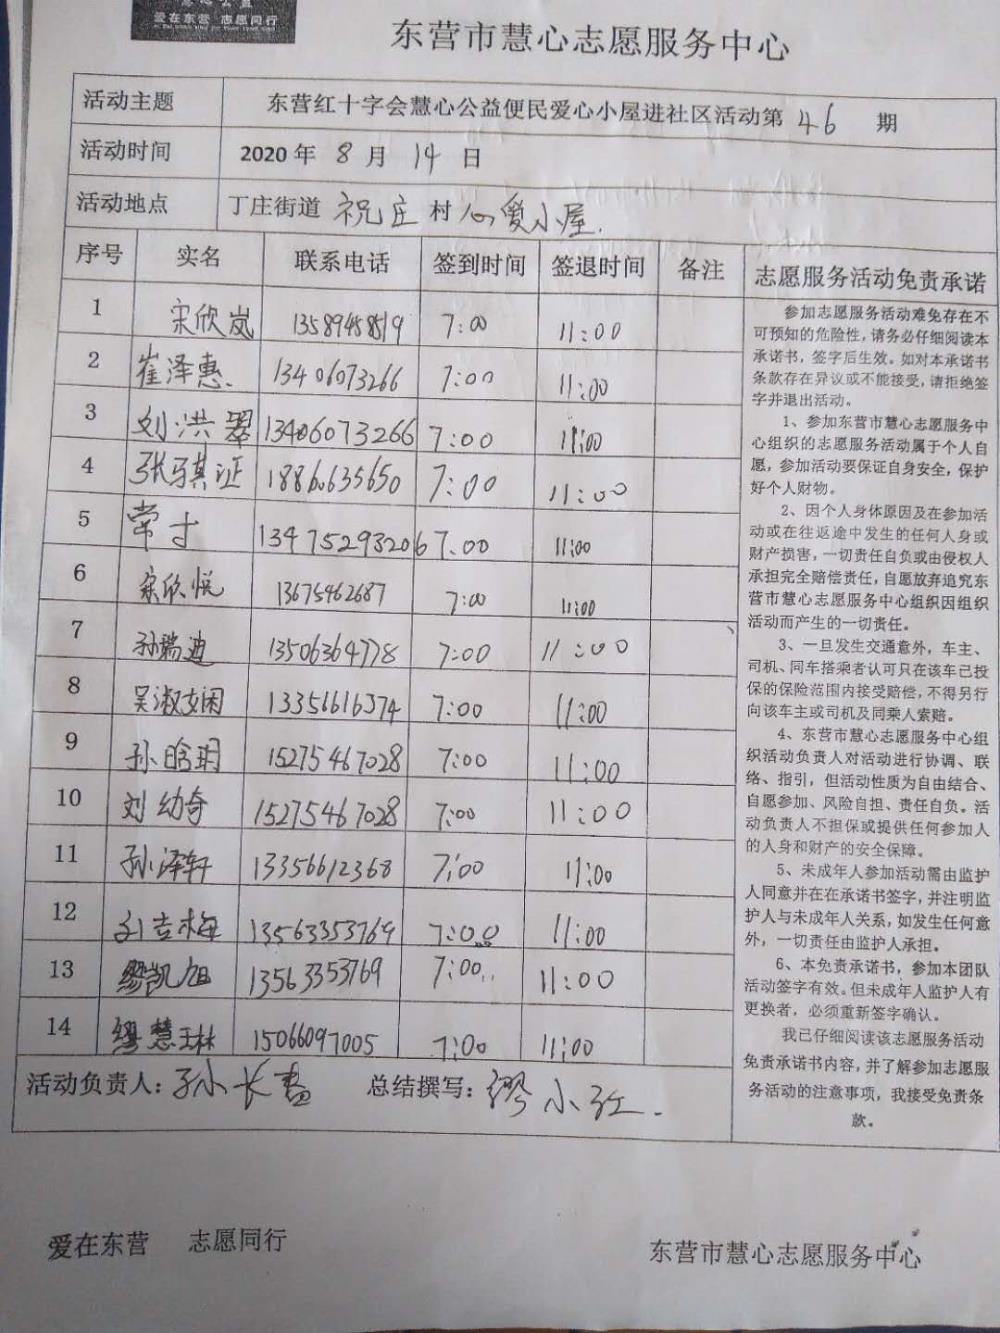 爱在东营 志愿同行
东营市慧心志愿服务中心
活动主题 东营红十字会慧心公益便民爱心小屋进社区活动第 46 期
活动时间 2020 年 8 月 14 日
活动地点 丁庄街道 祝庄 村 心爱小屋.
序号 实名 联系电话 签到时间 签退时间 备注
1 宋欣岚 13589458519 7:00 11:00
2 崔泽惠. 13406073266 7:00 11:00
3 刘洪翠 13406073266 7:00 11:00
4 张骐证 18860635650 7:00 11:00
5 常寸 13475293206 7.00 11:00
6 宋欣悦 13675462687 7:00 11:00
7 孙瑞迪 13506364778 7:00 11:00
8 吴淑娴 13356616374 7:00 11:00
9 孙晗玥 15275467028 7:00 11:00
10 刘幼奇 15275467028 7:00 11:00
11 孙泽轩 13356612368 7:00 11:00
12 孙吉梅 13563353769 7:00 11:00
13 缪凯旭 13563353769 7:00 11:00
14 缪慧琳 15066097005 7:00 11:00
活动负责人: 孙长 总结撰写: 缪小红.
志愿服务活动免责承诺
参加志愿服务活动难免存在不
可预知的危险性，请务必仔细阅读本
承诺书，签字后生效。如对本承诺书
条款存在异议或不能接受，请拒绝签
字并退出活动。
1、参加东营市慧心志愿服务中
心组织的志愿服务活动属于个人自
愿，参加活动要保证自身安全，保护
好个人财物。
2、因个人身体原因及在参加活
动或在往返途中发生的任何人身或
财产损害，一切责任自负或由侵权人
承担完全赔偿责任，自愿放弃追究东
营市慧心志愿服务中心组织因组织
活动而产生的一切责任。
3、一旦发生交通意外，车主、
司机、同车搭乘者认可只在该车已投
保的保险范围内接受赔偿，不得另行
向该车主或司机及同乘人索赔。
4、东营市慧心志愿服务中心组
织活动负责人对活动进行协调、联
络、指引，但活动性质为自由结合、
自愿参加、风险自担、责任自负。活
动负责人不担保或提供任何参加人
的人身和财产的安全保障。
5、未成年人参加活动需由监护
人同意并在在承诺书签字，并注明监
护人与未成年人关系，如发生任何意
外，一切责任由监护人承担。
6、本免责承诺书，参加本团队
活动签字有效。但未成年人监护人有
更换者，必须重新签字确认。
我已仔细阅读该志愿服务活动
免责承诺书内容，并了解参加志愿服
务活动的注意事项，我接受免责条
款。
爱在东营 志愿同行
东营市慧心志愿服务中心